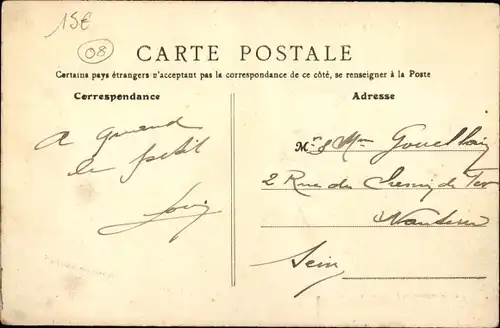 15€
08
CARTE POSTALE
Certains pays étrangers n'acceptant pas la correspondance de ce côté, se renseigner à la Poste
Correspondance
Adresse
A quand
le petit
Mr & Mme
2 Rue du Chemin de Fer
Nanterre
Seine